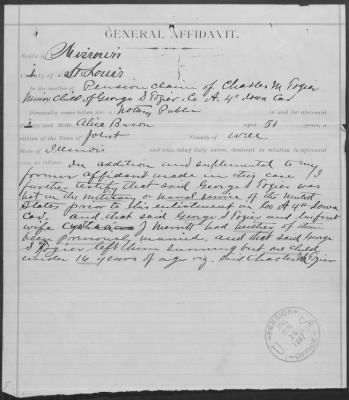 GENERAL AFFIDAVIT.
State of Missouri
County of St Louis
In the matter of Pension claim of Charles M Tozier
Minor Child of George S Tozier, Co A. 4" Iowa Cav
Personally came before me, a Notary Public
County and State, Alice Bacon aged 51 years, a
citizen of the Town of Joliet County of Will
State of Illinois
who being duly sworn, declared in relation to aforesaid
case, as follows: In addition and suplimental to my
former affidavit made in this case I
further testify that said George S Tozier was
not in the military or naval service of the United
States prior to his enlistment in Co A 4th Iowa
Cav, and that said George S Tozier and his first
wife J Merritt had neither of them
been previously married, and that said George
S Tozier left them surviving but one child
under 16 years of age viz. said Charles M Tozier
PENSION OFFICE
1897